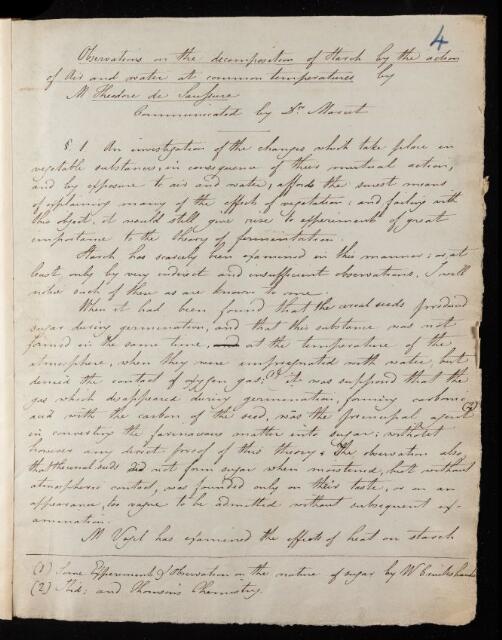 4
Observations on the decomposition of Starch by the action
of Air and water at common temperatures by
M Theodore de Saussure
Communicated by Dr. Marcet
§ 1 An investigation of the changes which take place in
vegetable substances, in consequence of their mutual action,
and by exposure to air and water, affords the surest means
of explaining many of the effects of vegetation: and failing with
this object, it would still give rise to experiments of great
importance to the theory of fermentation.
Starch has scarcely been examined in this manner; or at
least only by very indirect and insufficient observations. I will
notice such of these as are known to me.
When it had been found that the cereal seeds produced
sugar during germination, and that this substance was not
formed in the same time, at the temperature of the
atmosphere, when they were impregnated with water, but
denied the contact of oxygen gas; (1) it was supposed that the
gas which disappeared during germination, forming carbonic
acid with the carbon of the seed, was the principal agent (2)
in converting the farinaceous matter into sugar; without
however any direct proof of this theory: The observation also,
that the cereal seeds did not form sugar when moistened, but without
atmospheric contact, was founded only on their taste, or on an
appearance, too vague to be admitted without subsequent ex-
amination.
M Vogel has examined the effects of heat on starch
(1) Some Experiments & Observations on the nature of sugar by W Cruikshank
(2) Ibid: and Thomson's Chemistry.